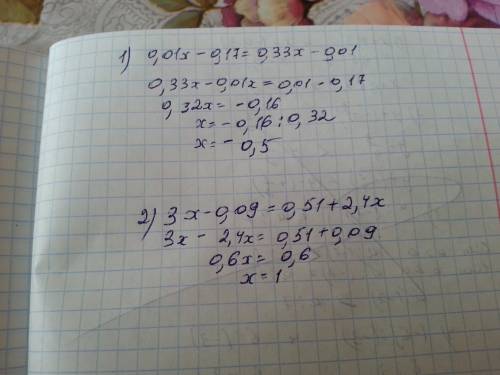 1) 0,01x - 0,17 = 0,33x - 0,01
0,33x - 0,01x = 0,01 - 0,17
0,32x = - 0,16
x = - 0,16 : 0,32
x = - 0,5
2) 3x - 0,09 = 0,51 + 2,4x
3x - 2,4x = 0,51 + 0,09
0,6x = 0,6
x = 1